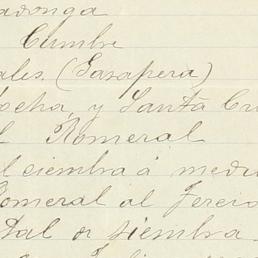 Cumbre
ales. (Gasapera)
ocha, y Santa Cru
l Romeral
l siembra á medi
Romeral al Tercio
tal or siembra